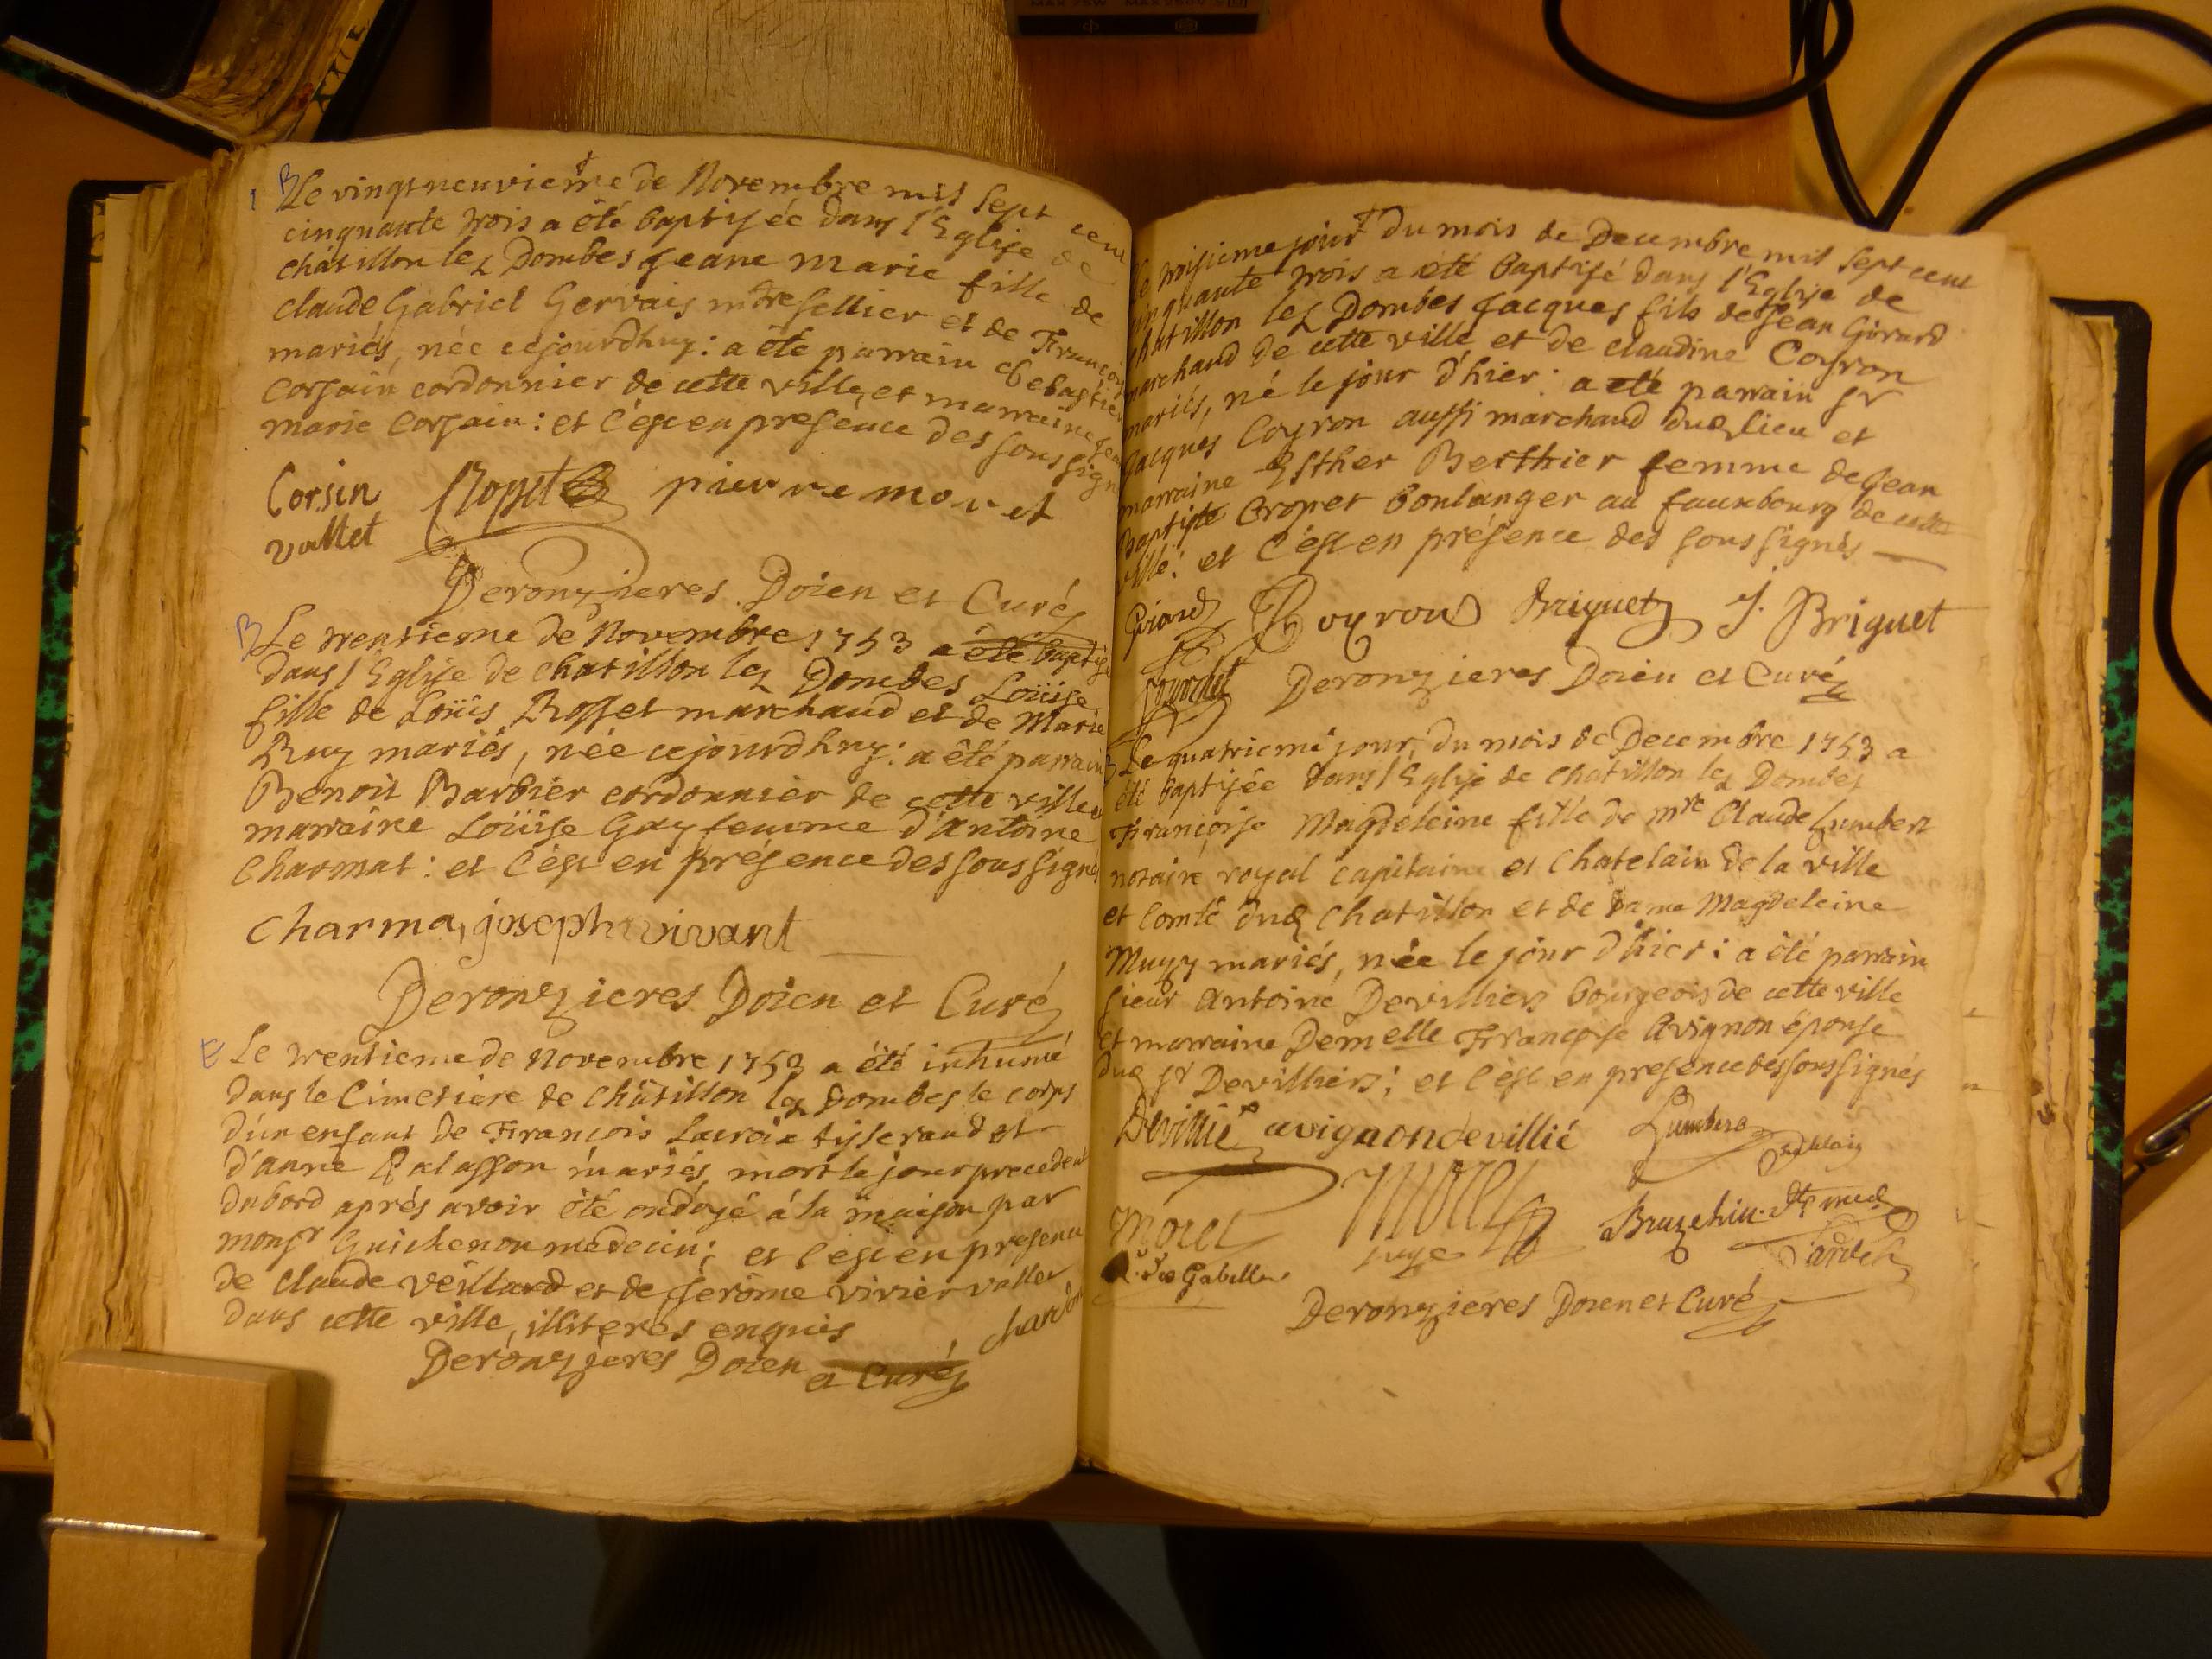 B Le vingt neuvieme de Novembre mil sept cent
cinquante trois a été baptisée dans l'Eglise de
châtillon lez Dombes Jeane Marie fille de
claude Gabriel Gervais mtre sellier et de Françoise
mariés, née cejourdhuy: a été parrain Sebastien
Corsain cordonnier de cette ville, et marraine
marie Corsain: et c'est en presence des sous sign
Corsin
vallet
pierre moret
Deronzieres Doien et Curé
B Le trentieme de Novembre 1753 a été baptisé
dans l'Eglise de châtillon lez Dombes Loüise
fille de Loüis Rosset marchand et de Marie
Ruy mariés, née cejourdhuy: a été parrain
Benoit Barbier cordonnier de cette ville
marraine Loüise Gay femme d'Antoine
Charmat: et c'est en présence des sous signés
charma, joseph vivant
Deronzieres Doien et Curé
E Le trentieme de Novembre 1753 a été inhumé
dans le Cimetiere de châtillon lez Dombes le corps
d'un enfant de François Lacroix tisserand et
d'anne Palasson mariés, mort le jour precedent
dabord aprés avoir été ondoyé à la maison par
monsr Guichenon medecin; et c'est en presence
de claude veillard et de Jerome vivier vallet
dans cette ville, illiterés enquis
Deronzieres Doien et Curé
le troisieme jour du mois de Decembre mil sept cent
cinquante trois a été baptisé dans l'Eglise de
châtillon lez Dombes Jacques fils de Jean Girard
marchand de cette ville et de claudine Coyron
mariés, né le jour d'hier: a été parrain sr
Jacques Coyron aussi marchand dud lieu et
marraine Esther Berthier femme de Jean
Baptiste Cropet boulanger au fauxbourg de cette
ville: et c'est en présence des sous signés
Girard Coyron Briguet J. Briguet
Deronzieres Doien et Curé
B Le quatrieme jour du mois de Decembre 1753 a
été baptisée dans l'Eglise de châtillon lez Dombes
Françoise Magdeleine fille de mre Claude Lumbert
notaire royal capitaine et chatelain de la ville
et Comté dud chatillon et de Dame Magdeleine
Muzy mariés, née le jour d'hier: a été parrain
sieur Antoine Devilliers bourgeois de cette ville
et marraine Demelle Françoise Avignon épouse
dud sr Devilliers; et c'est en presence des sous signés
Devillié avignon devillié Lumbert
Morel
Morel
juge
Gabelles
Deronzieres Doien et Curé